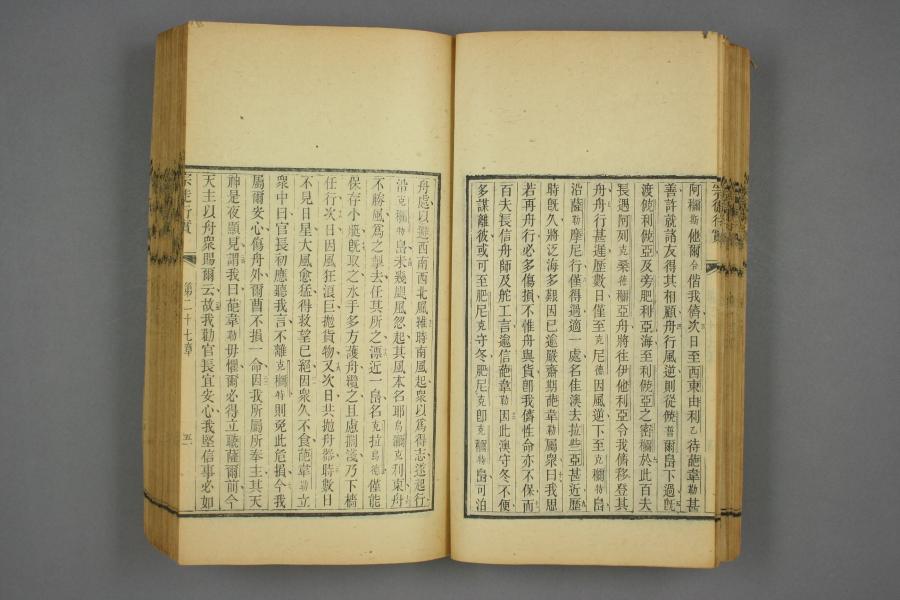 阿㭲斯他爾偕我儕次日至西東由利乙待葩韋勒甚
善許就諸友得其相顧舟行風逆則從傡普爾島下過旣
渡傡利傡亞及旁肥利亞海至利傡亞之密㭲於此百夫
長遇阿列克桑德㭲亞舟將往伊他利亞令我儕移登其
舟舟行甚遲歷數日僅至克尼德因風逆下至克㭲特島
沿薩勒摩尼行僅得過適一處名佳澳去拉些亞甚近歷
時旣久將泛海多艱因已逾嚴齋期葩韋勒屬衆曰我思
若再舟行必多傷損不惟舟與貨卽我儕性命亦不保而
百夫長信舟師及舵工言逾信葩韋勒因此澳守冬不便
多謀離彼或可至肥尼克守冬肥尼克卽克㭲特島可泊
舟處以避西南西北風維時南風起衆以爲得志遂起行
沿克㭲特島未幾颶風忽起其風本名耶烏㭲克利東舟
不勝風爲之掣去任其所之漂近一島名克拉烏德僅能
保存小艇旣取之水手多方護舟纜之且慮擱淺乃下檣
任行次日因風狂浪巨拋貨物又次日共拋舟器時數日
不見日星大風愈猛得救望已絕因衆久不食葩韋勒立
衆中曰官長初應聽我言不離克㭲特則免此危損今我
屬爾安心傷舟外爾曹不損一命因我所屬所奉主其天
神是夜顯見謂我曰葩韋勒毋懼爾必得立聽薩爾前今
天主以舟衆賜爾云故我勸官長宜安心我堅信事必如
宗徒行實 第二十七章 五